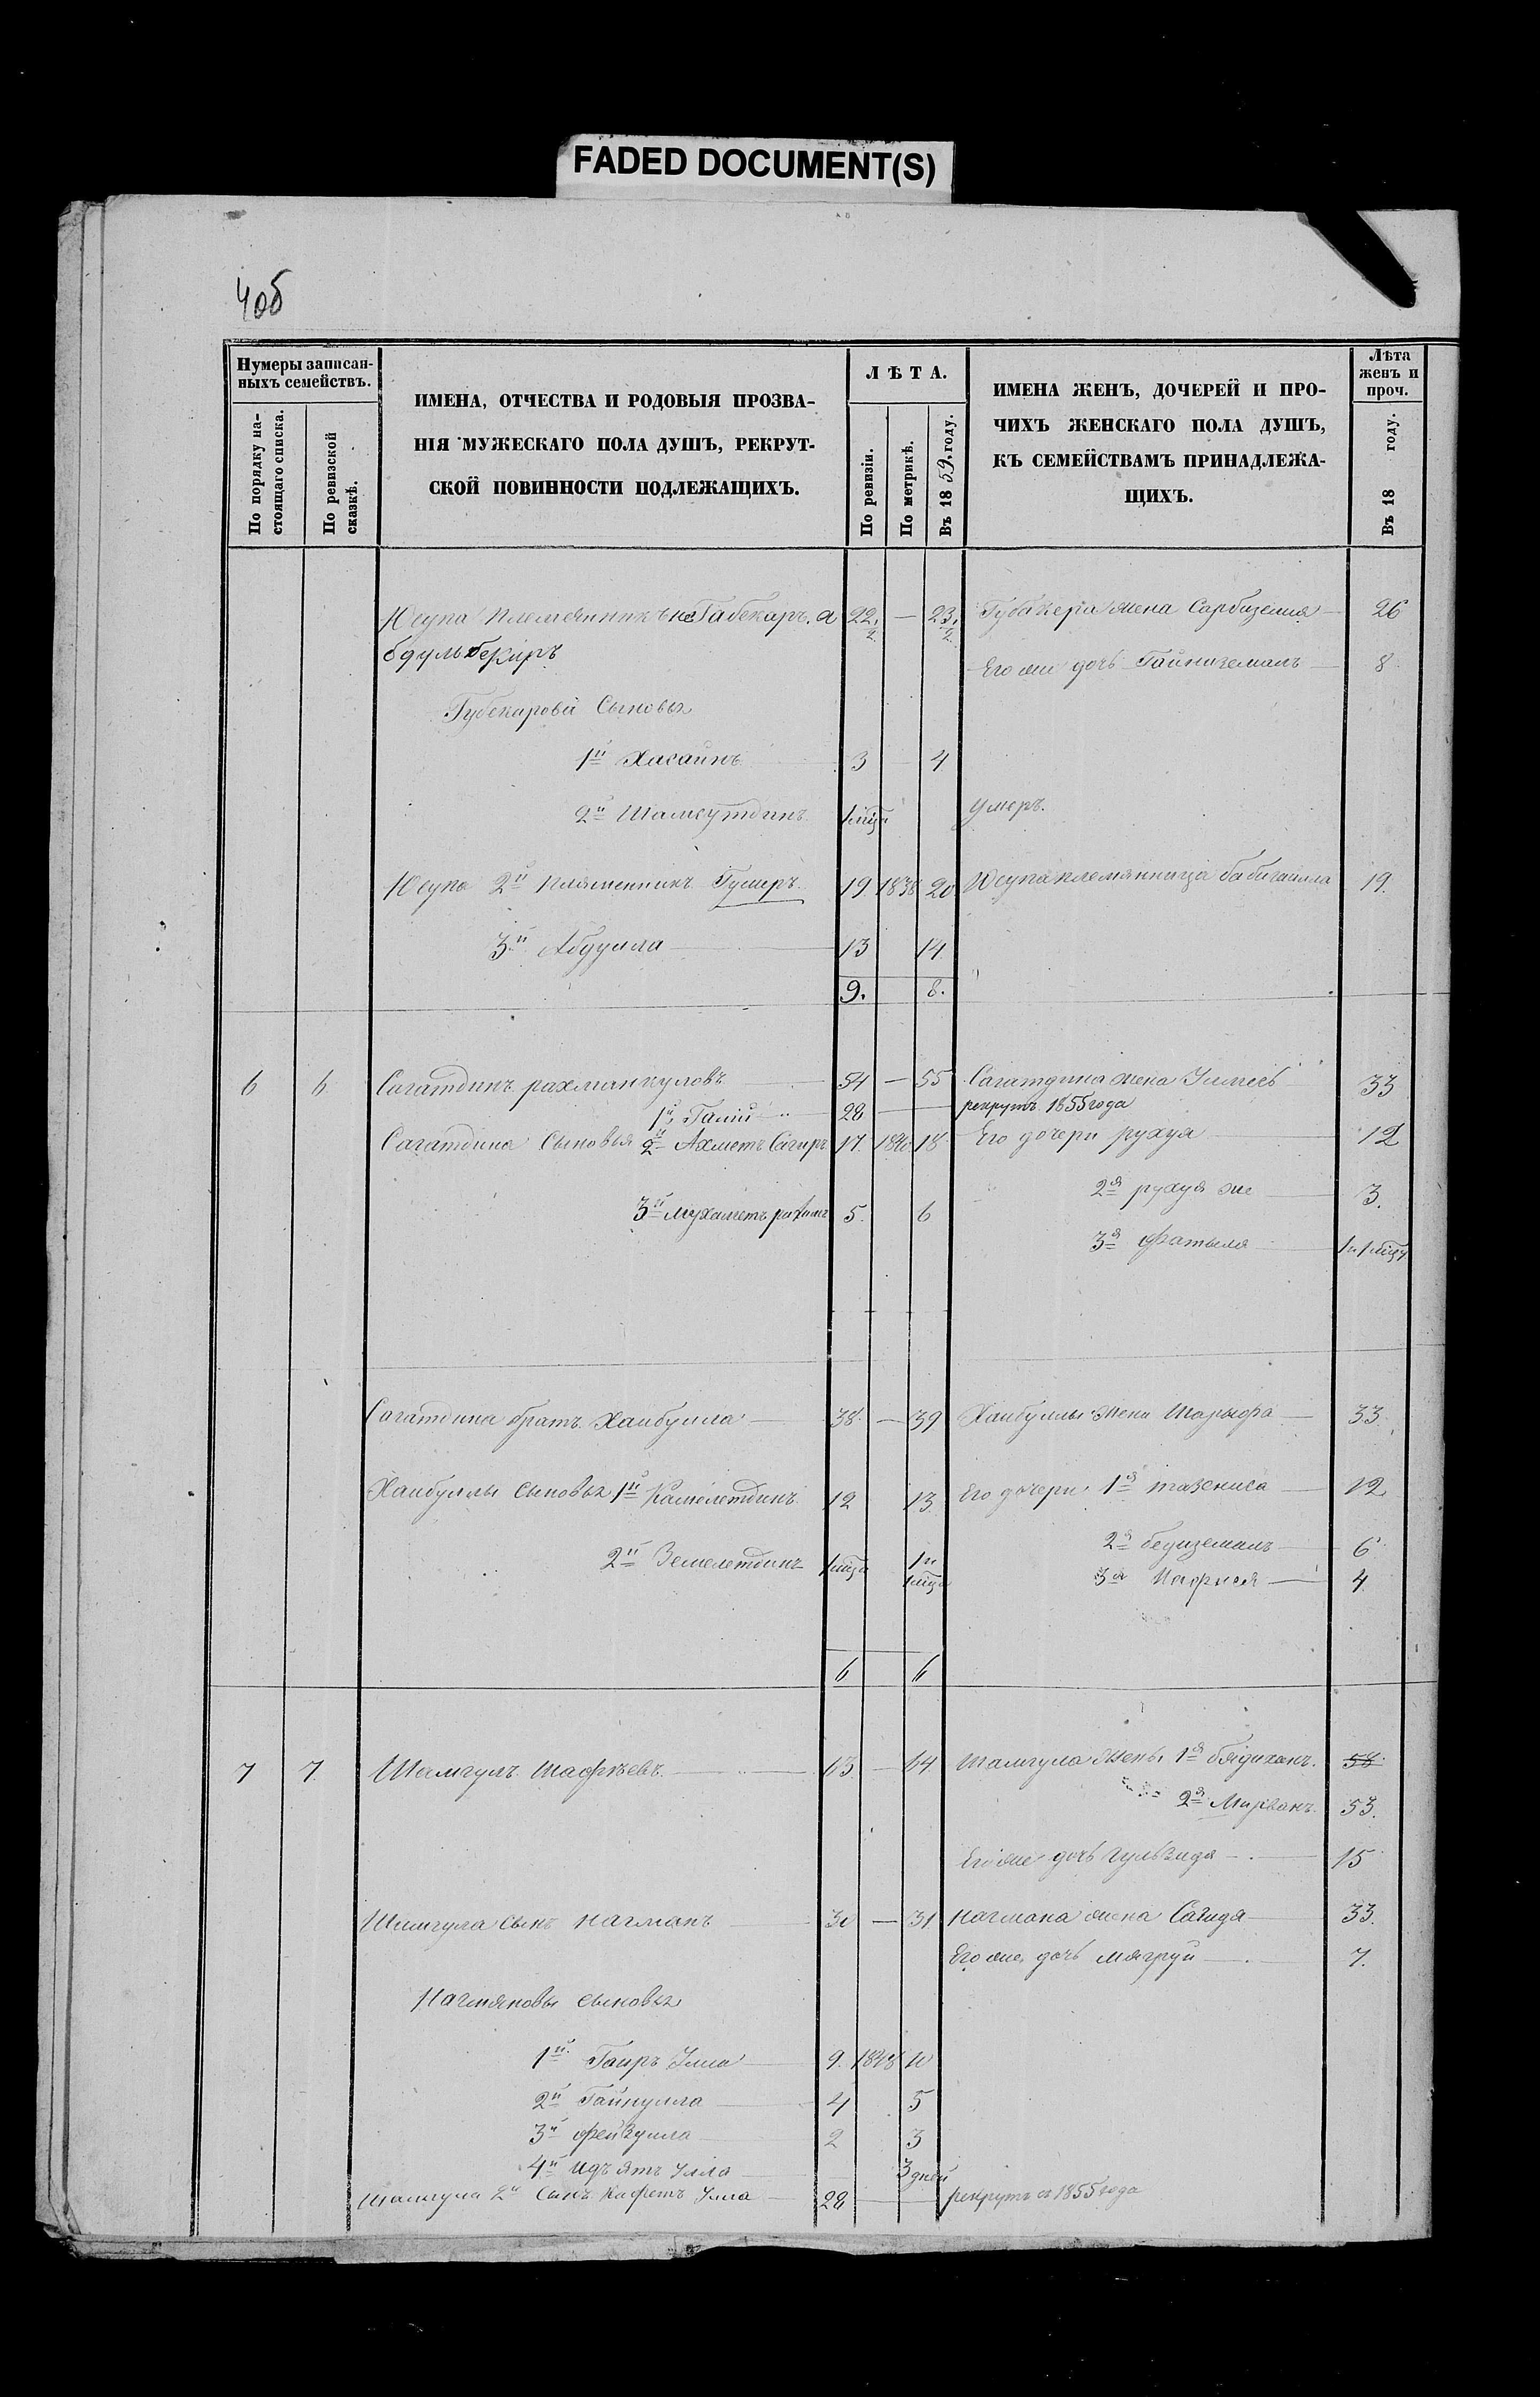 FADED DOCUMENT(S)
4об
Нумеры записан-
ныхъ семействъ.
По порядку на-
стоящаго списка.
По ревизской
сказкѣ.
ИМЕНА, ОТЧЕСТВА И РОДОВЫЯ ПРОЗВА-
НІЯ МУЖЕСКАГО ПОЛА ДУШЪ, РЕКРУТ-
СКОЙ ПОВИННОСТИ ПОДЛЕЖАЩИХЪ.
ЛѢТА.
По ревизіи.
По метрикѣ.
Въ 1859 году.
ИМЕНА ЖЕНЪ, ДОЧЕРЕЙ И ПРО-
ЧИХЪ ЖЕНСКАГО ПОЛА ДУШЪ,
КЪ СЕМЕЙСТВАМЪ ПРИНАДЛЕЖА-
ЩИХЪ.
Лѣта
женъ и
проч.
Въ 18 году.
Юсупа Племянникъ Габекаръ. а 22 1/2 — 23 1/2 Губакера жена Сарбиземия 26
бдульбекиръ
Его же дочь Гайнижемалъ 8
Губекаровы Сыновья
1й Хасаинъ 3 4
2й Шамсутдинъ 1 мѣца умеръ.
Юсупа 2й племенникъ Гумеръ 19 1838 20 Юсупа племянница бабигаилла 19.
3й Абдулла 13 14
9. 8.
6 6 Сагатдинъ рахманкуловъ 54 — 55 Сагатдина жена Уммесь 33
1й Галіи 28 — — рекрутъ 1855 года
Сагатдина Сыновья 2й Ахметъ Сагиръ 17. 1840 18 Его дочери рухуя 12
2я рухуя же 3.
3й мухаметъ рахимъ 5. 6
3я Фатыма 1 и 1 мѣцъ
Сагатдина братъ Хаибулла 38 — 39 Хаибуллы жена Шарифа 33.
Хаибуллы сыновья 1й Камелетдинъ 12 13 Его дочери 1я тазениса 12
2я бедиземалъ 6
2й Земелетдинъ 1 мѣца 1 и 1 мѣца
3я Нафися 4
6 6
7 7. Шамгулъ Шафкѣевъ 63 — 64 Шамгула жены 1я бядиханъ. 58
2я Мирванъ. 53.
Его же дочь гульзида 15
Шамгула сынъ нагманъ 30 — 31 Нагмана жена Сагида 33.
Его же дочь мягруй 7.
Нагмяновы сыновья
1й Гаиръ Улла 9. 1848 10
2й Гайнулла 4 5
3й Фейзулла 2 3
4й Идъятъ Улла 3 дней
Шамгула 2й Сынъ Кафетъ Улла 28 — — рекрутъ съ 1855 года